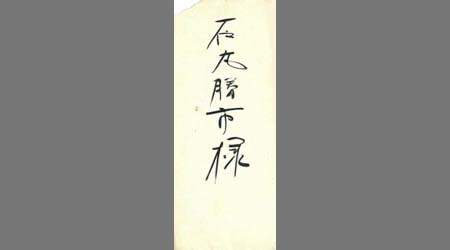 石丸勝市様